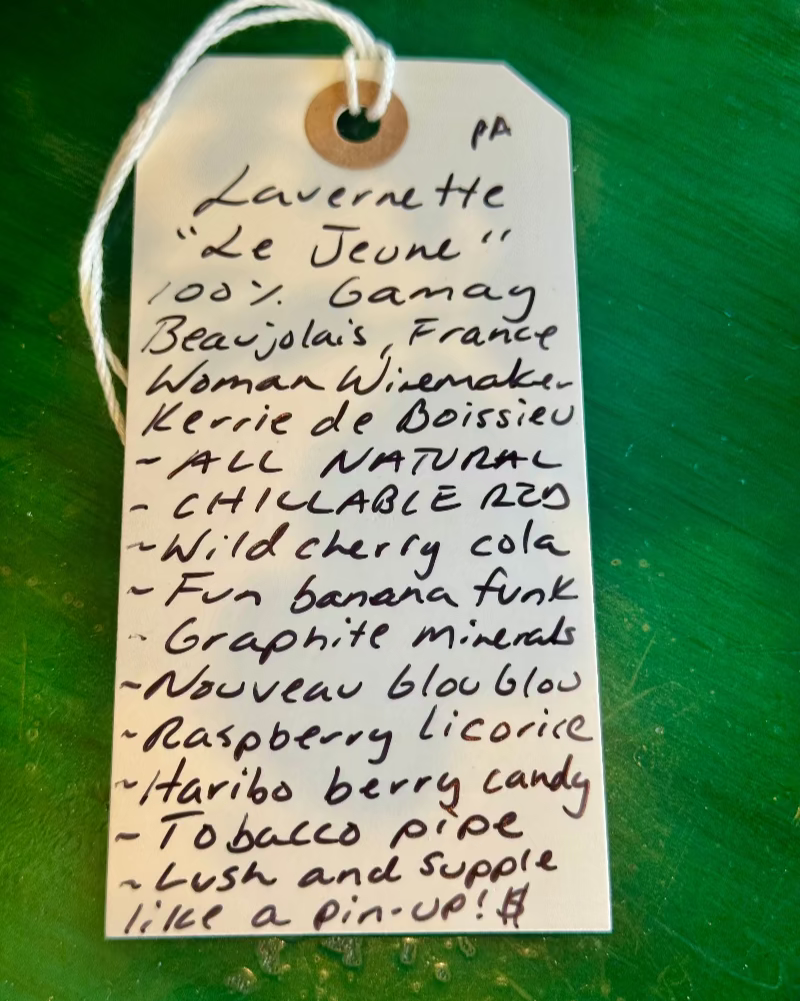 PA
Lavernette
"Le Jeune"
100% Gamay
Beaujolais, France
Woman Winemaker
Kerrie de Boissieu
- ALL NATURAL
- CHILLABLE RED
~ Wild cherry cola
~ Fun banana funk
~ Graphite minerals
~ Nouveau glou glou
~ Raspberry licorice
~ Haribo berry candy
~ Tobacco pipe
~ Lush and supple
like a pin-up! $